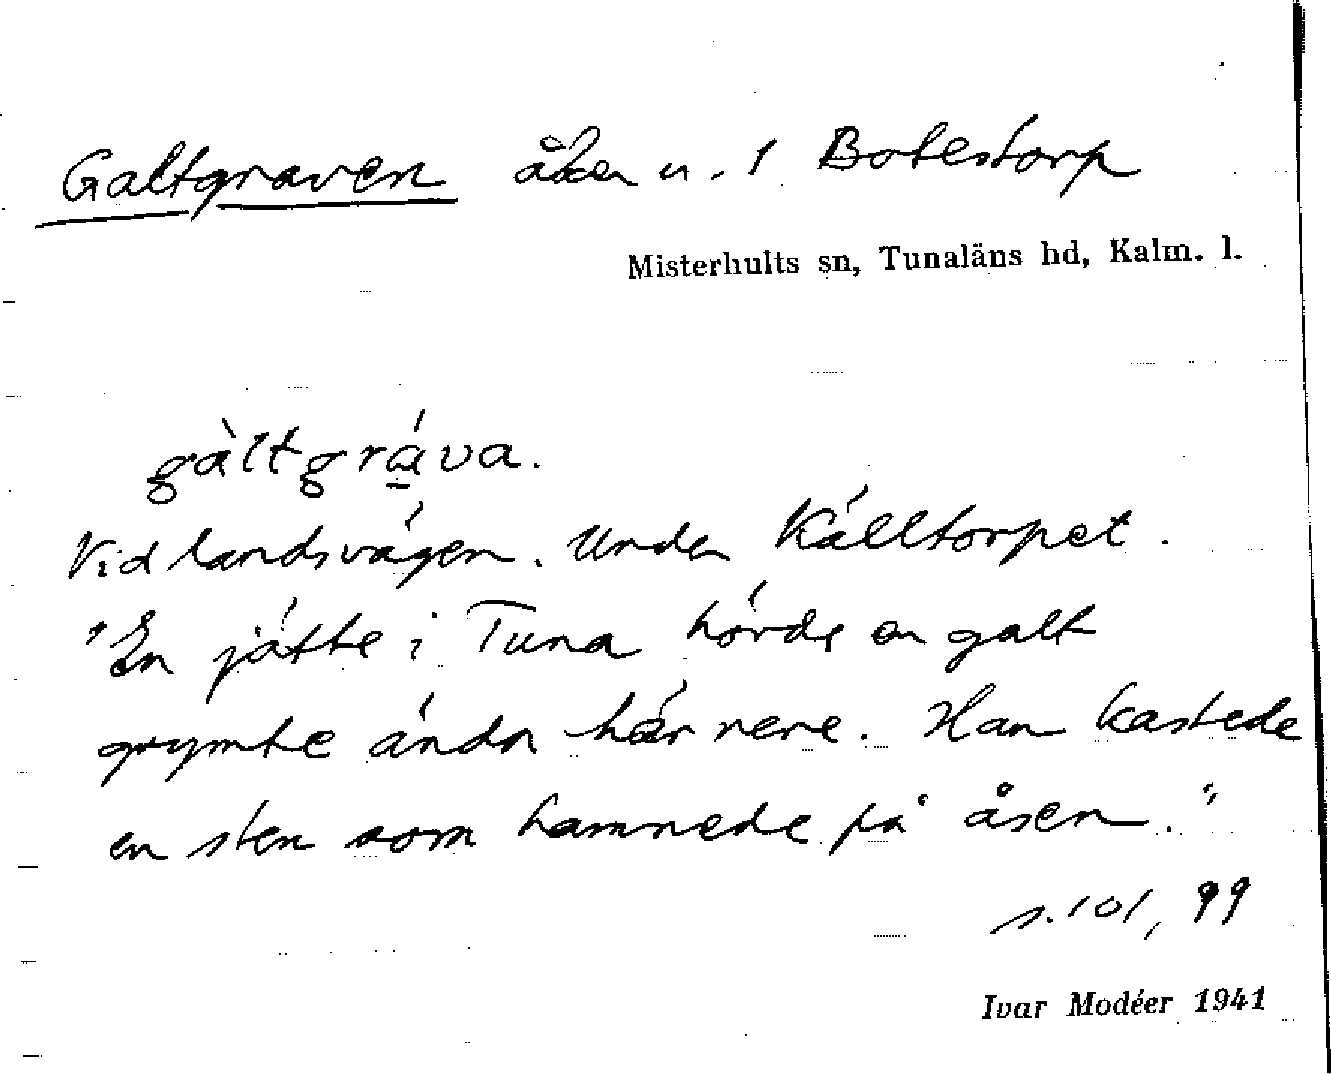 Galtgraven åker u. 1 Botestorp
Misterhults sn, Tunaläns hd, Kalm. l.
gàltgráva.
Vid landsvägen. Under Källtorpet.
"En jätte i Tuna hörde en galt
grymte ända här nere. Han kastede
en sten som hamnede på åsen."
s. 101, 99
Ivar Modéer 1941